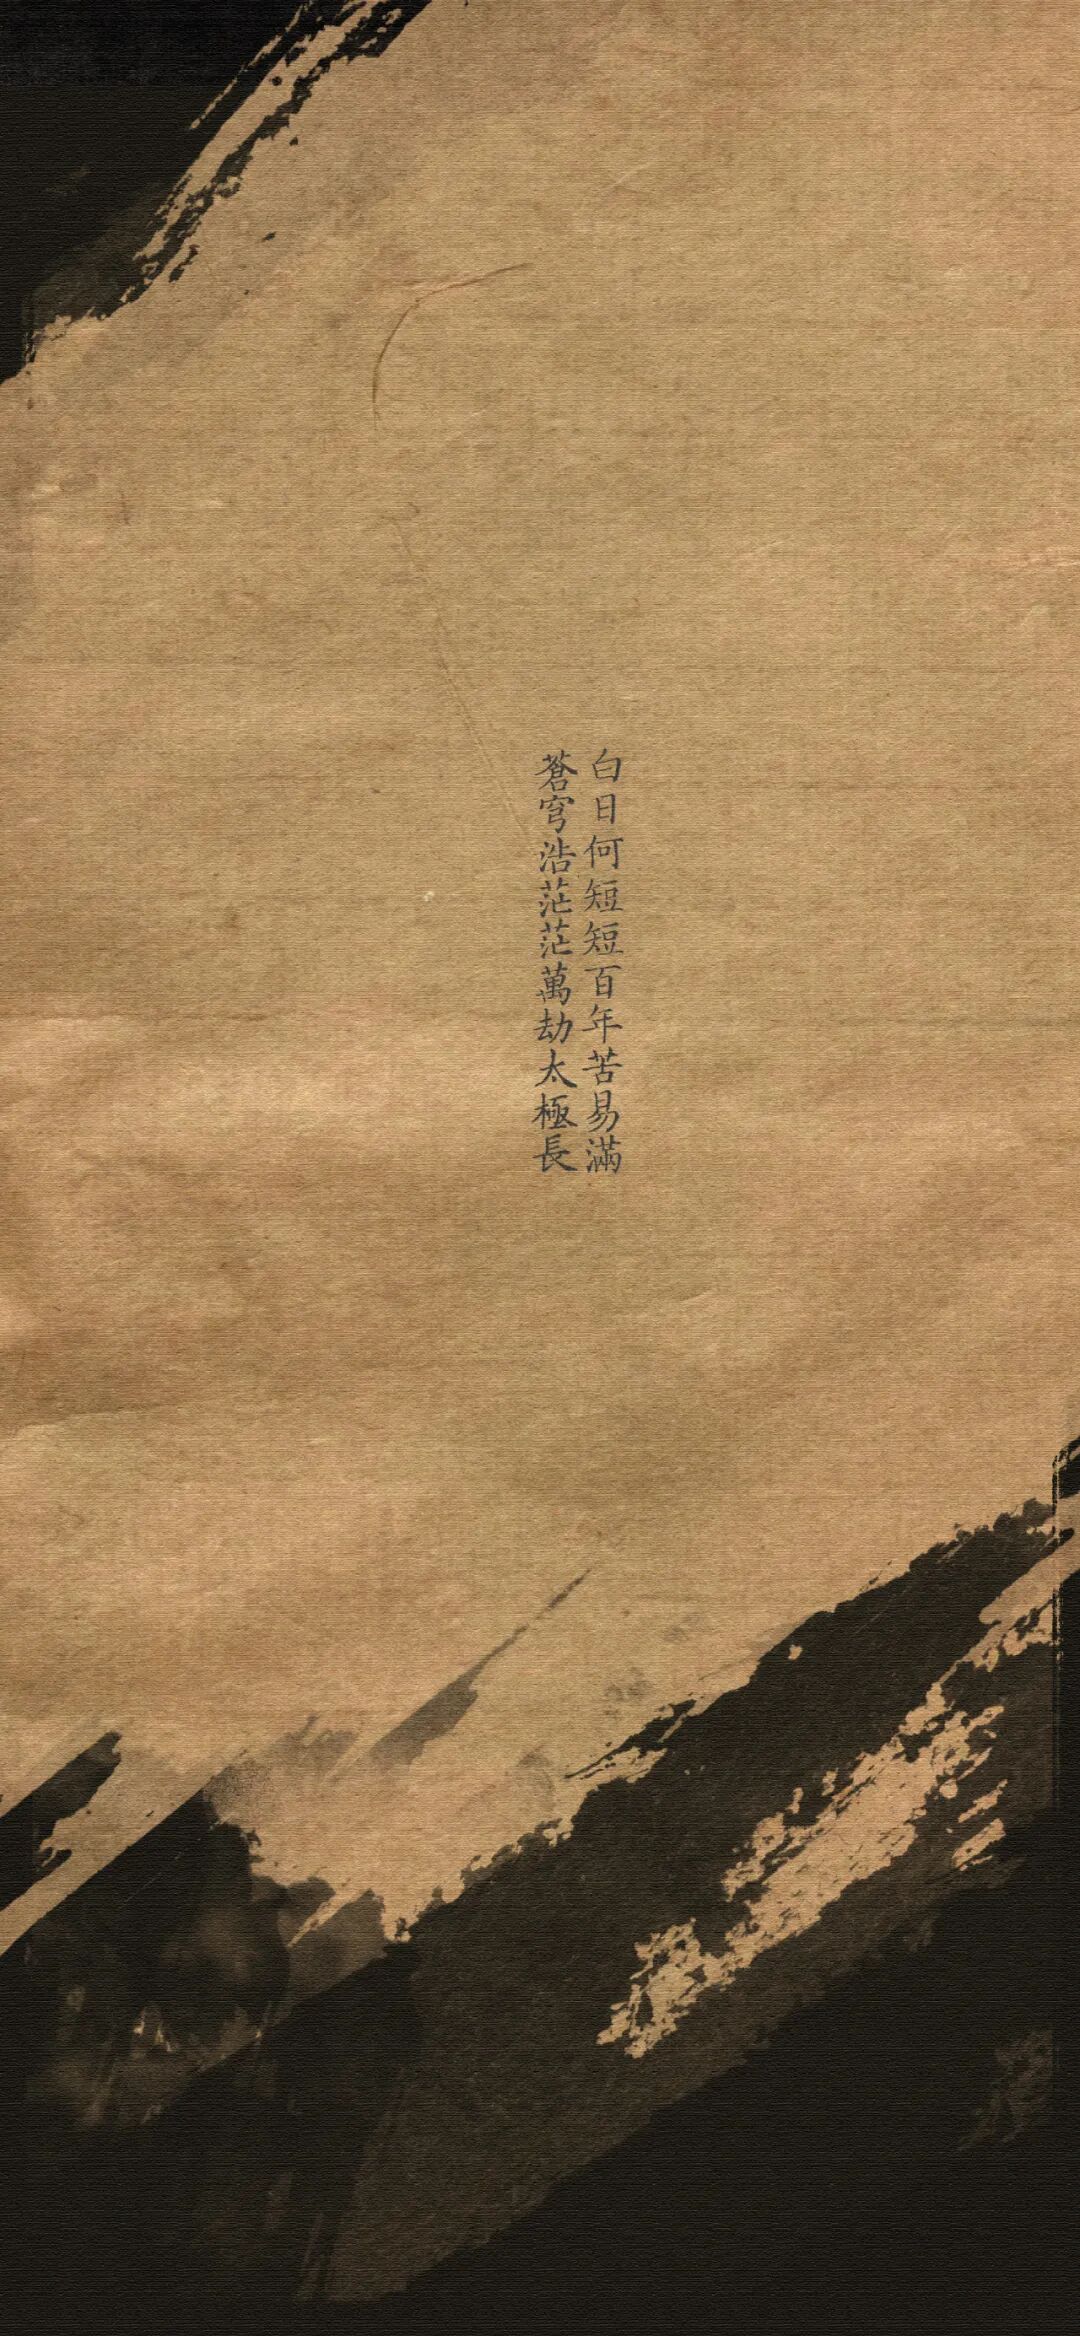 白日何短短百年苦易滿
蒼穹浩茫茫萬劫太極長